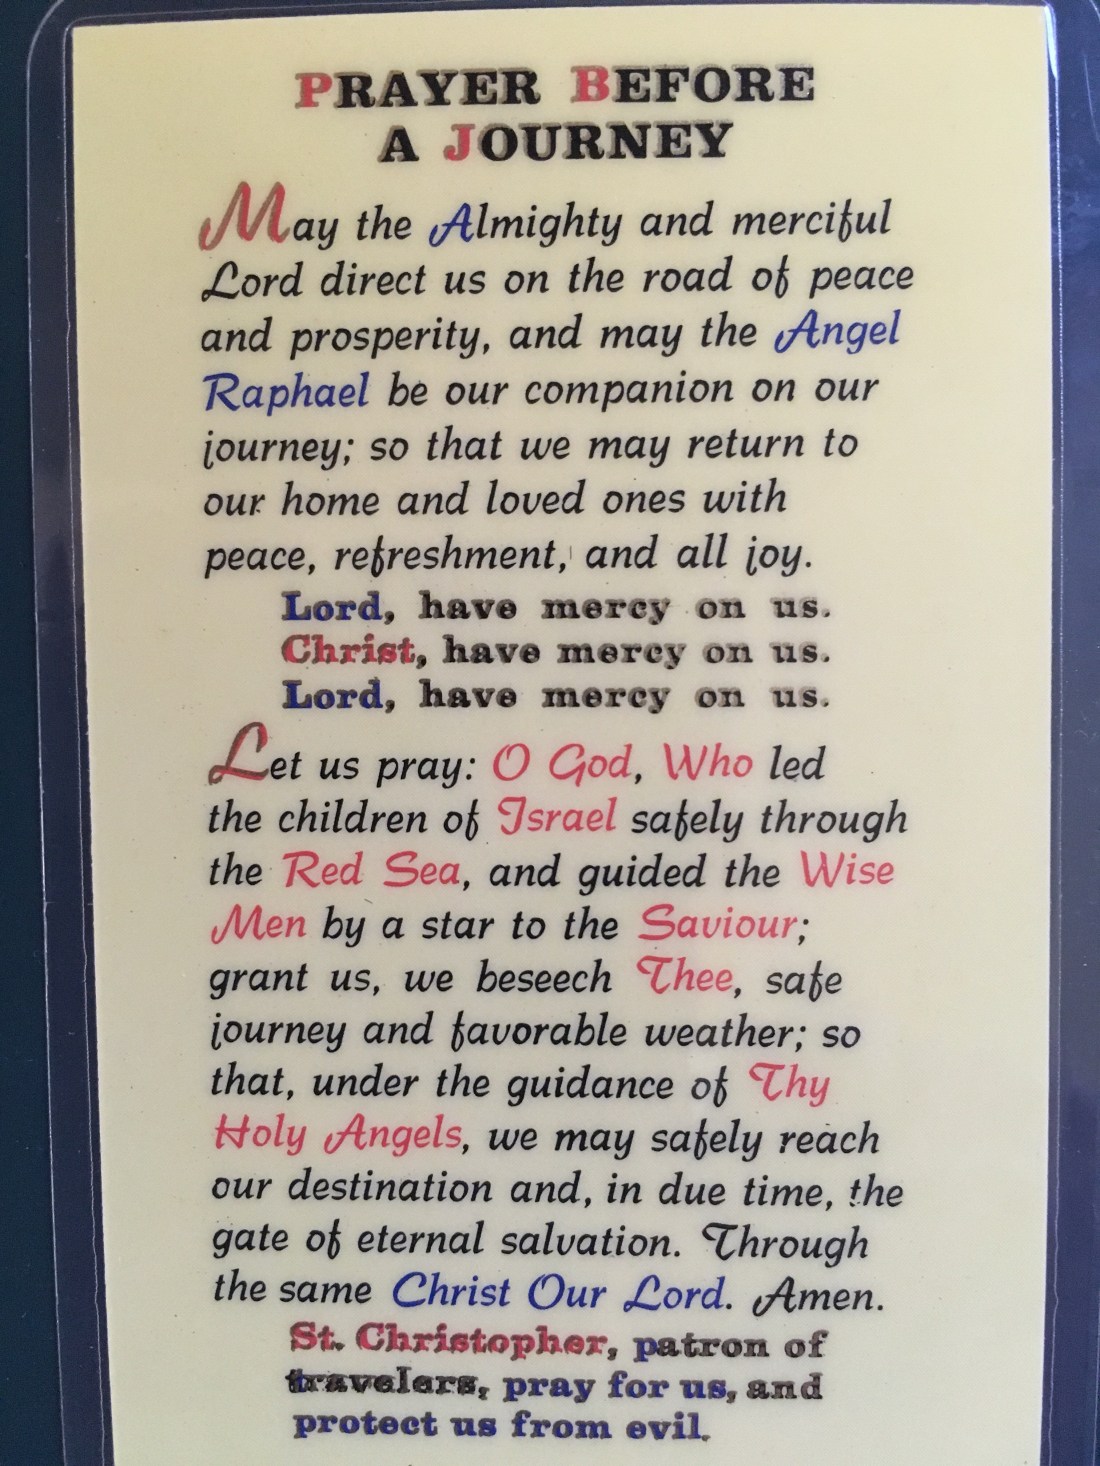 PRAYER BEFORE
A JOURNEY
May the Almighty and merciful
Lord direct us on the road of peace
and prosperity, and may the Angel
Raphael be our companion on our
journey; so that we may return to
our home and loved ones with
peace, refreshment, and all joy.
Lord, have mercy on us.
Christ, have mercy on us.
Lord, have mercy on us.
Let us pray: O God, Who led
the children of Israel safely through
the Red Sea, and guided the Wise
Men by a star to the Saviour;
grant us, we beseech Thee, safe
journey and favorable weather; so
that, under the guidance of Thy
Holy Angels, we may safely reach
our destination and, in due time, the
gate of eternal salvation. Through
the same Christ Our Lord. Amen.
St. Christopher, patron of
travelers, pray for us, and
protect us from evil.